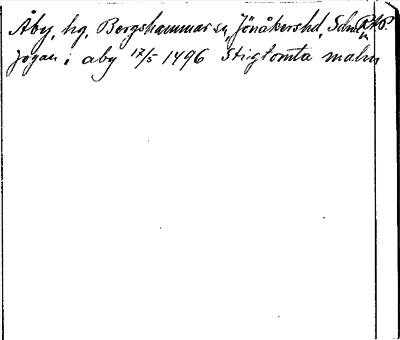 Åby, hg, Bergshammar sn, Jönåkershd, Sdml. RAP.
Jogan i aby 17/5 1496 Stigtomta malm